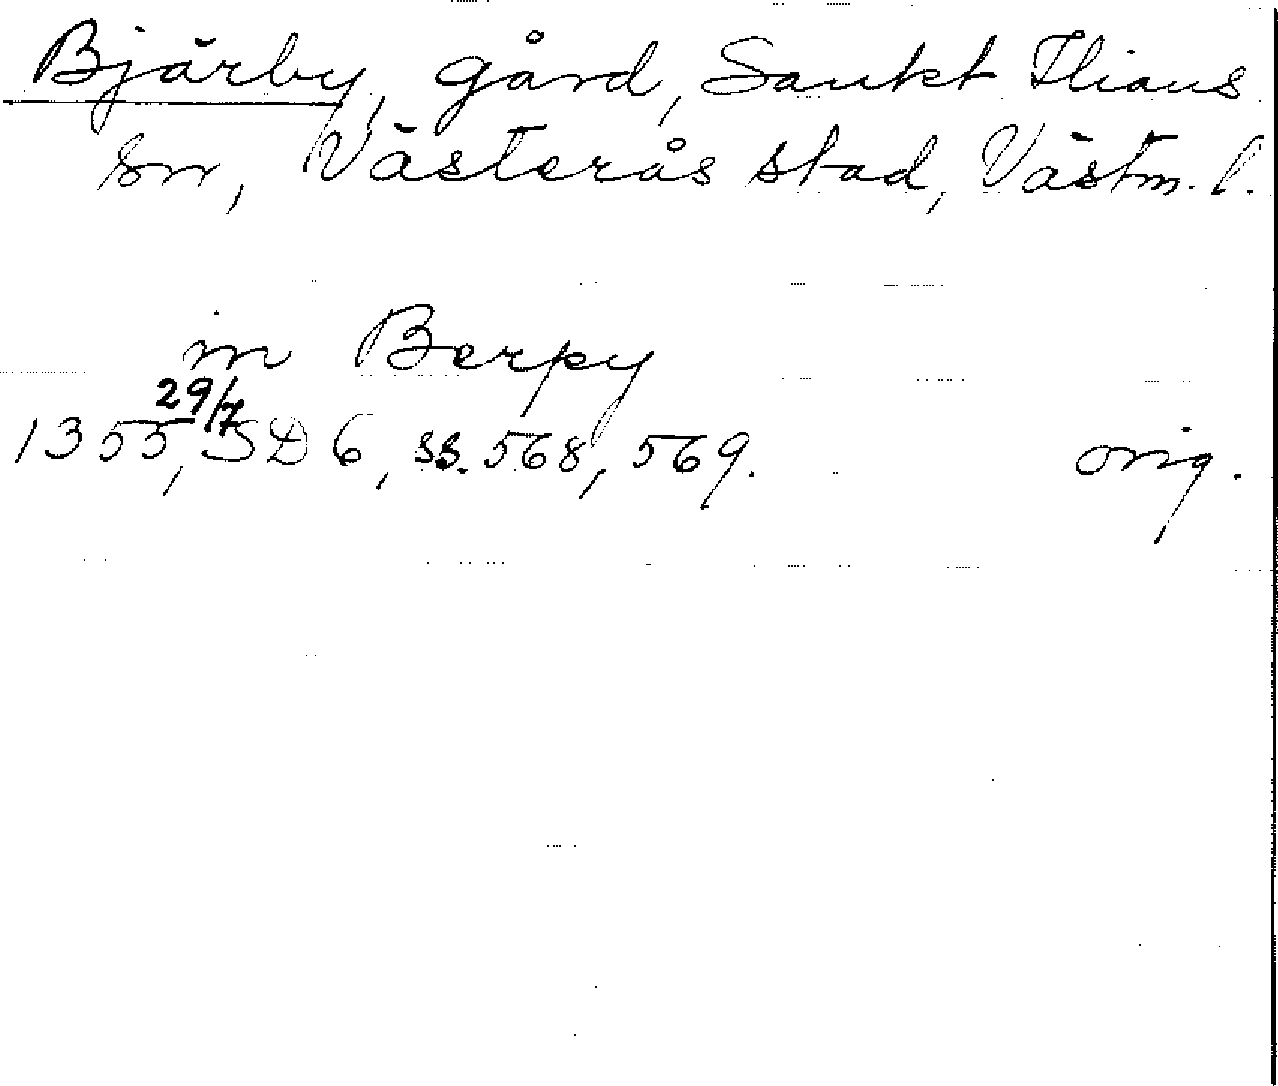 Bjärby, gård, Sankt Ilians
sn, Västerås stad, Västm. l.
in Berpy
1355 29/7, SD 6, ss. 568, 569. orig.